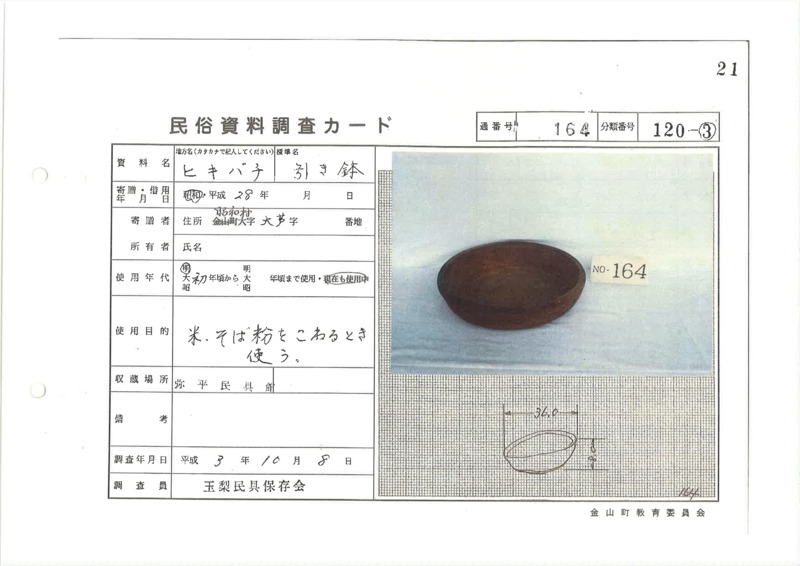 21
民俗資料調査カード
通番号 164 分類番号 120-③
資料名 地方名(カタカナで記入してください) 標準名
ヒキバチ 引き鉢
寄贈・借用年月日 昭和・平成 28年 月 日
寄贈者 住所 金山町大字 昭和村 大芦 字 番地
所有者 氏名
使用年代 明大昭 初 年頃から 明大昭 年頃まで使用・現在も使用中
使用目的 米、そば粉をこねるとき
使う。
収蔵場所 弥平民具館
備考
調査年月日 平成 3年 10月 8日
調査員 玉梨民具保存会
NO-164
36.0
164
金山町教育委員会